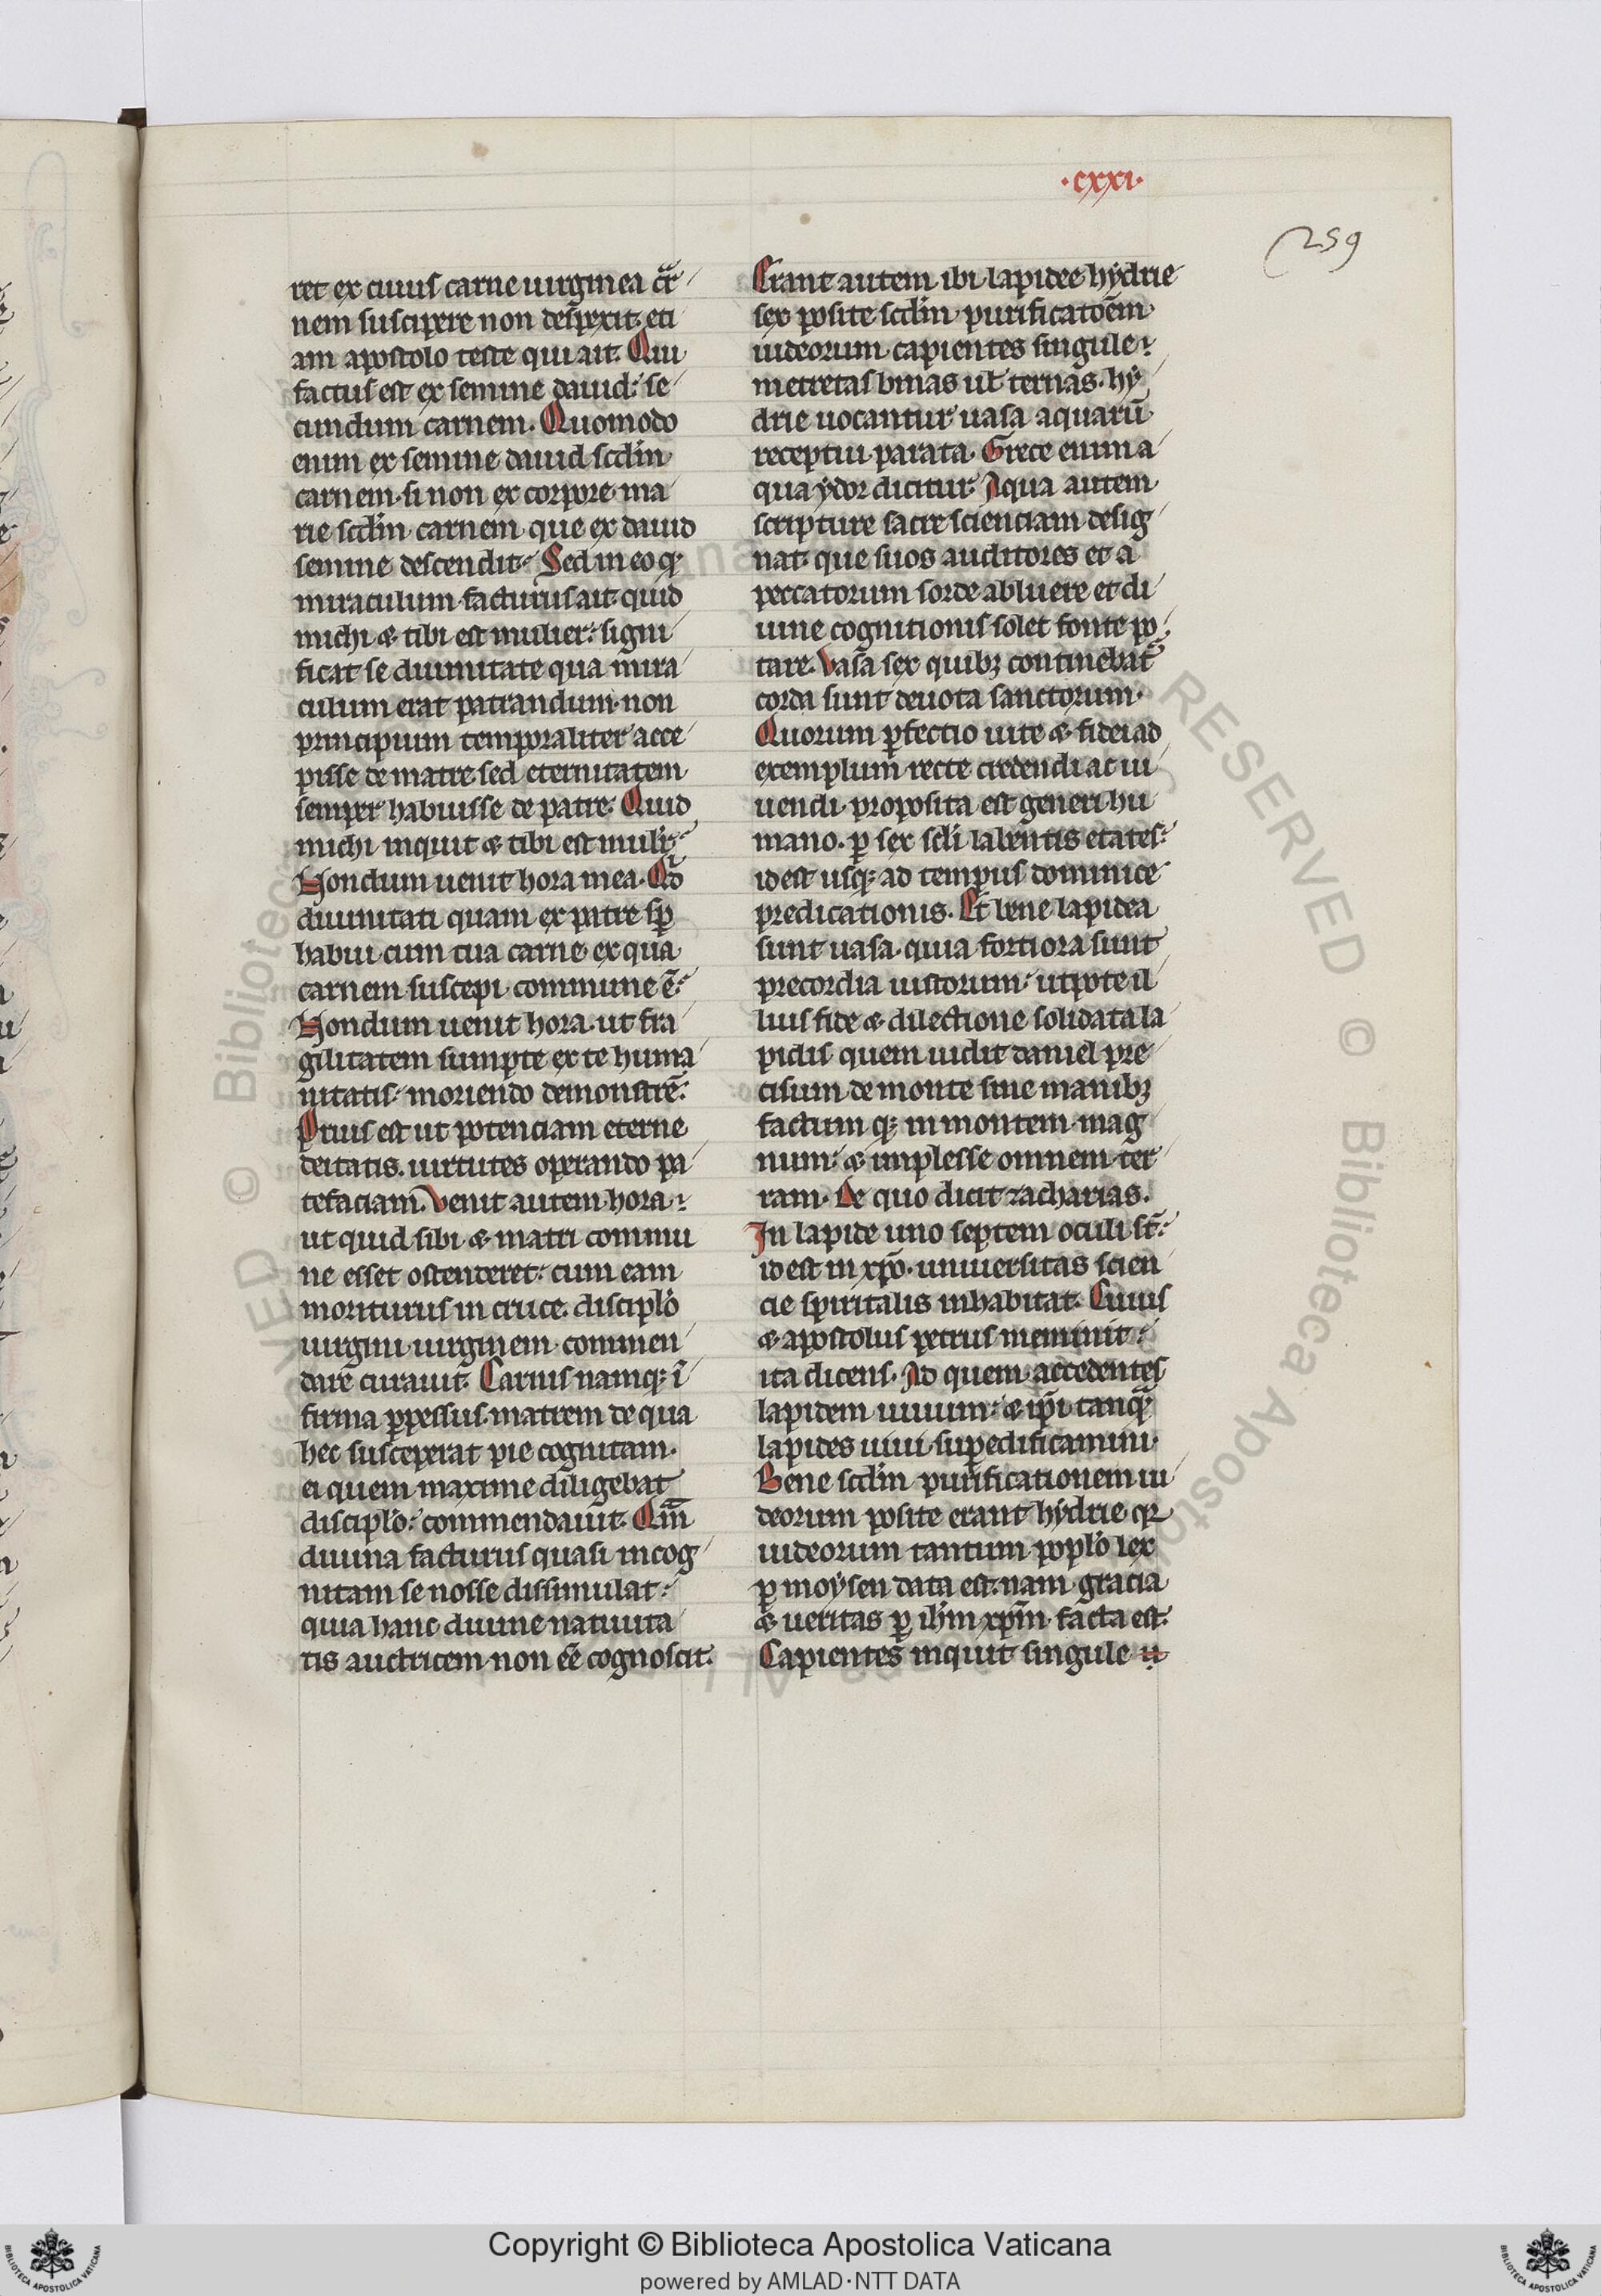 ·cxxi·
259
ret ex cuius carne uirginea cr̄
nem suscipere non despexit. eti
am apostolo teste qui ait. Qui
factus est ex semine dauid: se
cundum carnem. Quomodo
enim ex semine dauid scd̄m
carnem. si non ex corpore ma
rie scd̄m carnem que ex dauid
semine descendit. Sed in eo qꝫ
miraculum facturus ait. quid
michi & tibi est mulier: signi
ficat se diuinitate qua mira
culum erat patrandum. non
principium temporaliter acce
pisse de matre sed eternitatem
semper habuisse de patre. Quid
michi inquit & tibi est muli͛r:
Nondum uenit hora mea. Qd̄
diuinitati quam ex patre sꝑ
habui cum tua carne ex qua
carnem suscepi commune ē:
Nondum uenit hora. ut fra
gilitatem sumpte ex te huma
nitatis moriendo demonstrē:
Prius est ut potenciam eterne
deitatis. uirtutes operando pa
tefaciam. Venit autem hora:
ut quid sibi & matri commu
ne esset ostenderet: cum eam
moriturus in cruce. discipl̄o
uirgini uirginem commen
dare curauit. Carnis namqꝫ ī
firma ꝑpessus. matrem de qua
hec susceperat pie cognitam.
ei quem maxime diligebat
discipl̄o: commendauit. Qm̄
diuina facturus quasi incog
nitam se nosse dissimulat:
quia hanc diuine natiuita
tis auctricem non eē cognoscit.
Erant autem ibi lapidee hẏdrie
sex posite scd̄m purificatōem
iudeorum capientes singule:
metretas binas ul̄ ternas. hẏ
drie uocantur uasa aquarū
receptui parata. Grece enim a
qua ẏdor dicitur. Aqua autem
scripture sacre scienciam desig
nat. que suos auditores et a
peccatorum sorde abluere et di
uine cognitionis solet fonte po
tare. Vasa sex quibꝫ continebat᷑
corda sunt deuota sanctorum.
Quorum ꝑfectio uite & fidei ad
exemplum recte credendi ac ui
uendi proposita est generi hu
mano. ꝑ sex scl̄i labentis etates:
id est usqꝫ ad tempus dominice
predicationis. Et bene lapidea
sunt uasa. quia fortiora sunt
precordia iustorum: utpote il
lius fide & dilectione solidata la
pidis quem uidit daniel pre
cisum de monte sine manibꝫ
factum qꝫ in montem mag
num: & implesse omnem ter
ram. De quo dicit zacharias.
In lapide uno septem oculi st̄:
id est in xp̄o. uniuersitas scien
cie spiritalis inhabitat. Cuius
& apostolus petrus meminit:
ita dicens. Ad quem accedentes
lapidem uiuum: & ip̄i tanqͣ
lapides uiui suꝑedificamini.
Bene scd̄m purificationem iu
deorum posite erant hẏdrie qꝛ
iudeorum tantum popl̄o lex
ꝑ moẏsen data est. nam gracia
& ueritas ꝑ ih̄m xp̄m facta est.
Capientes inquit singule
© Biblioteca Apostolica
RESERVED
Copyright © Biblioteca Apostolica Vaticana
powered by AMLAD·NTT DATA
BIBLIOTECA APOSTOLICA VATICANA
BIBLIOTECA APOSTOLICA VATICANA